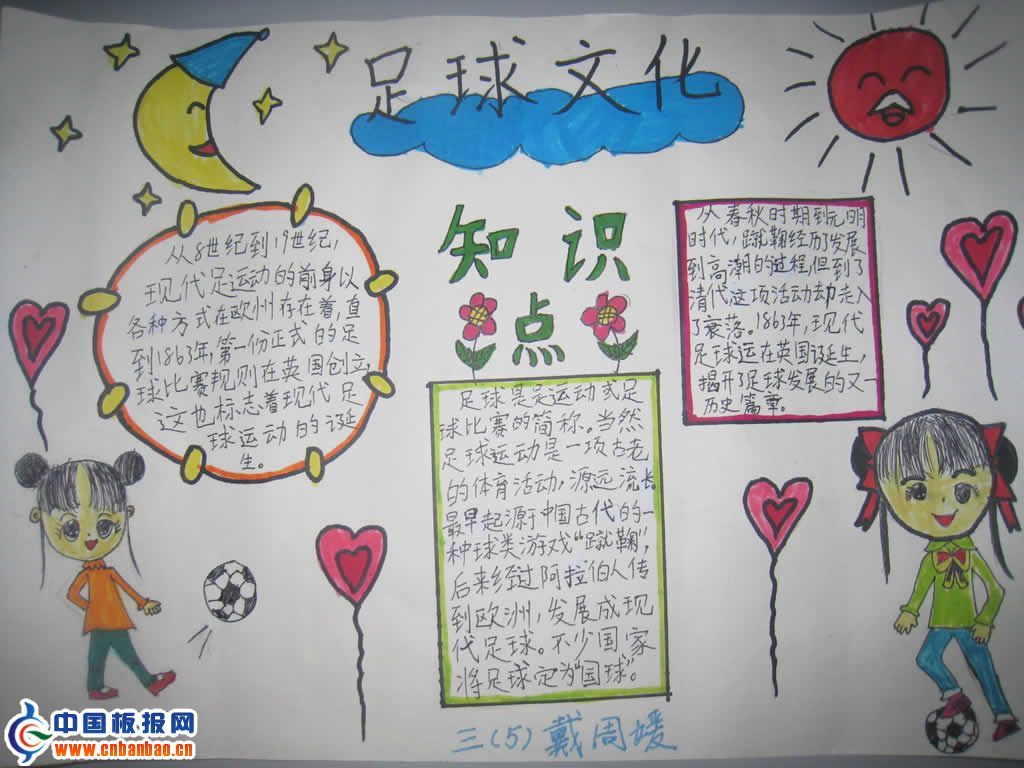 足球文化
知识点
从8世纪到19世纪,
现代足运动的前身以
各种方式在欧州存在着,直
到1863年,第一份正式的足
球比赛规则在英国创立,
这也标志着现代足
球运动的诞
生。
足球是足运动或足
球比赛的简称。当然
足球运动是一项古老
的体育活动,源远流长
最早起源于中国古代的一
种球类游戏“蹴鞠”,
后来经过阿拉伯人传
到欧洲,发展成现
代足球。不少国家
将足球定为“国球”。
从春秋时期到元明
时代,蹴鞠经历了发展
到高潮的过程,但到了
清代这项活动却走入
了衰落。1863年,现代
足球运在英国诞生,
揭开了足球发展的又一
历史篇章。
三(5)戴周媛
中国板报网
www.cnbanbao.cn